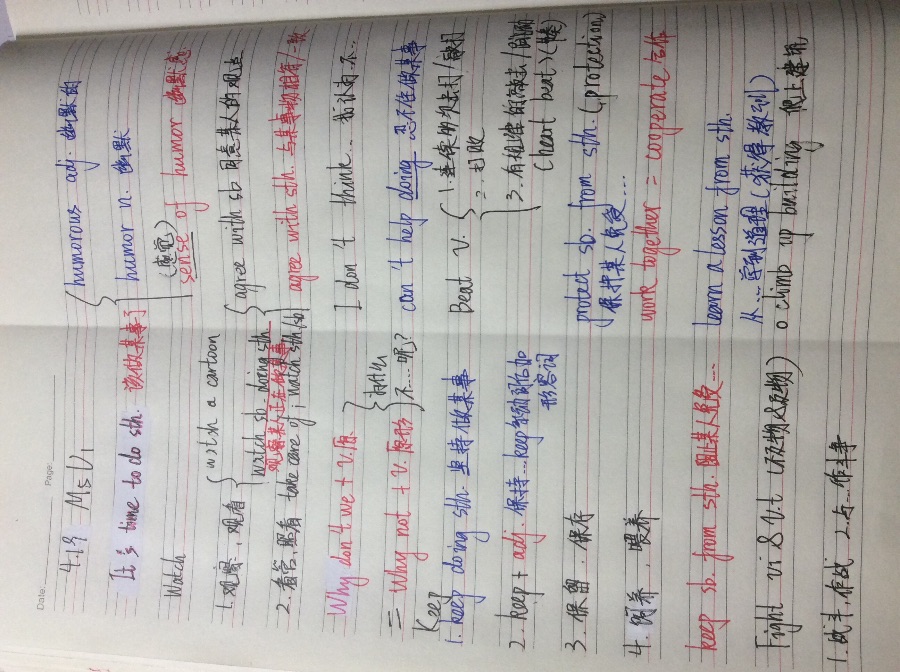 Date:
Page:
4.19 M5U1
It's time to do sth. 该做某事了
Watch
1. 观察、观看 { watch a cartoon
watch sb. doing sth
观看某人正在做某事
2. 看管,照看 take care of; watch sth/sb
Why don't we + v.原
= Why not + v.原形 } 为什么不....呢?
Keep
1. keep doing sth. 坚持做某事
2. keep + adj. 保持...keep系动词后加形容词
3. 保留、保存
4. 饲养、喂养
keep sb. from sth. 阻止某人免受...
Fight vi & v.t (及物&不及物)
1. 战斗,作战 2.与...作斗争
{ humorous adj. 幽默的
humor n. 幽默
(感觉)
sense of humor 幽默感
{ agree with sb 同意某人的观点
agree with sth. 与某事物相符/一致
I don't think... 我认为不...
can't help doing 忍不住做某事
Beat v. { 1. 连续的击打、敲打
2. 打败
3. 有规律的
(heart beat)
protect sb. from sth. (protection)
保护某人免受....
work together = cooperate 合作
learn a lesson from sth.
从...得到道理(获得教训)
climb up building 爬上建筑